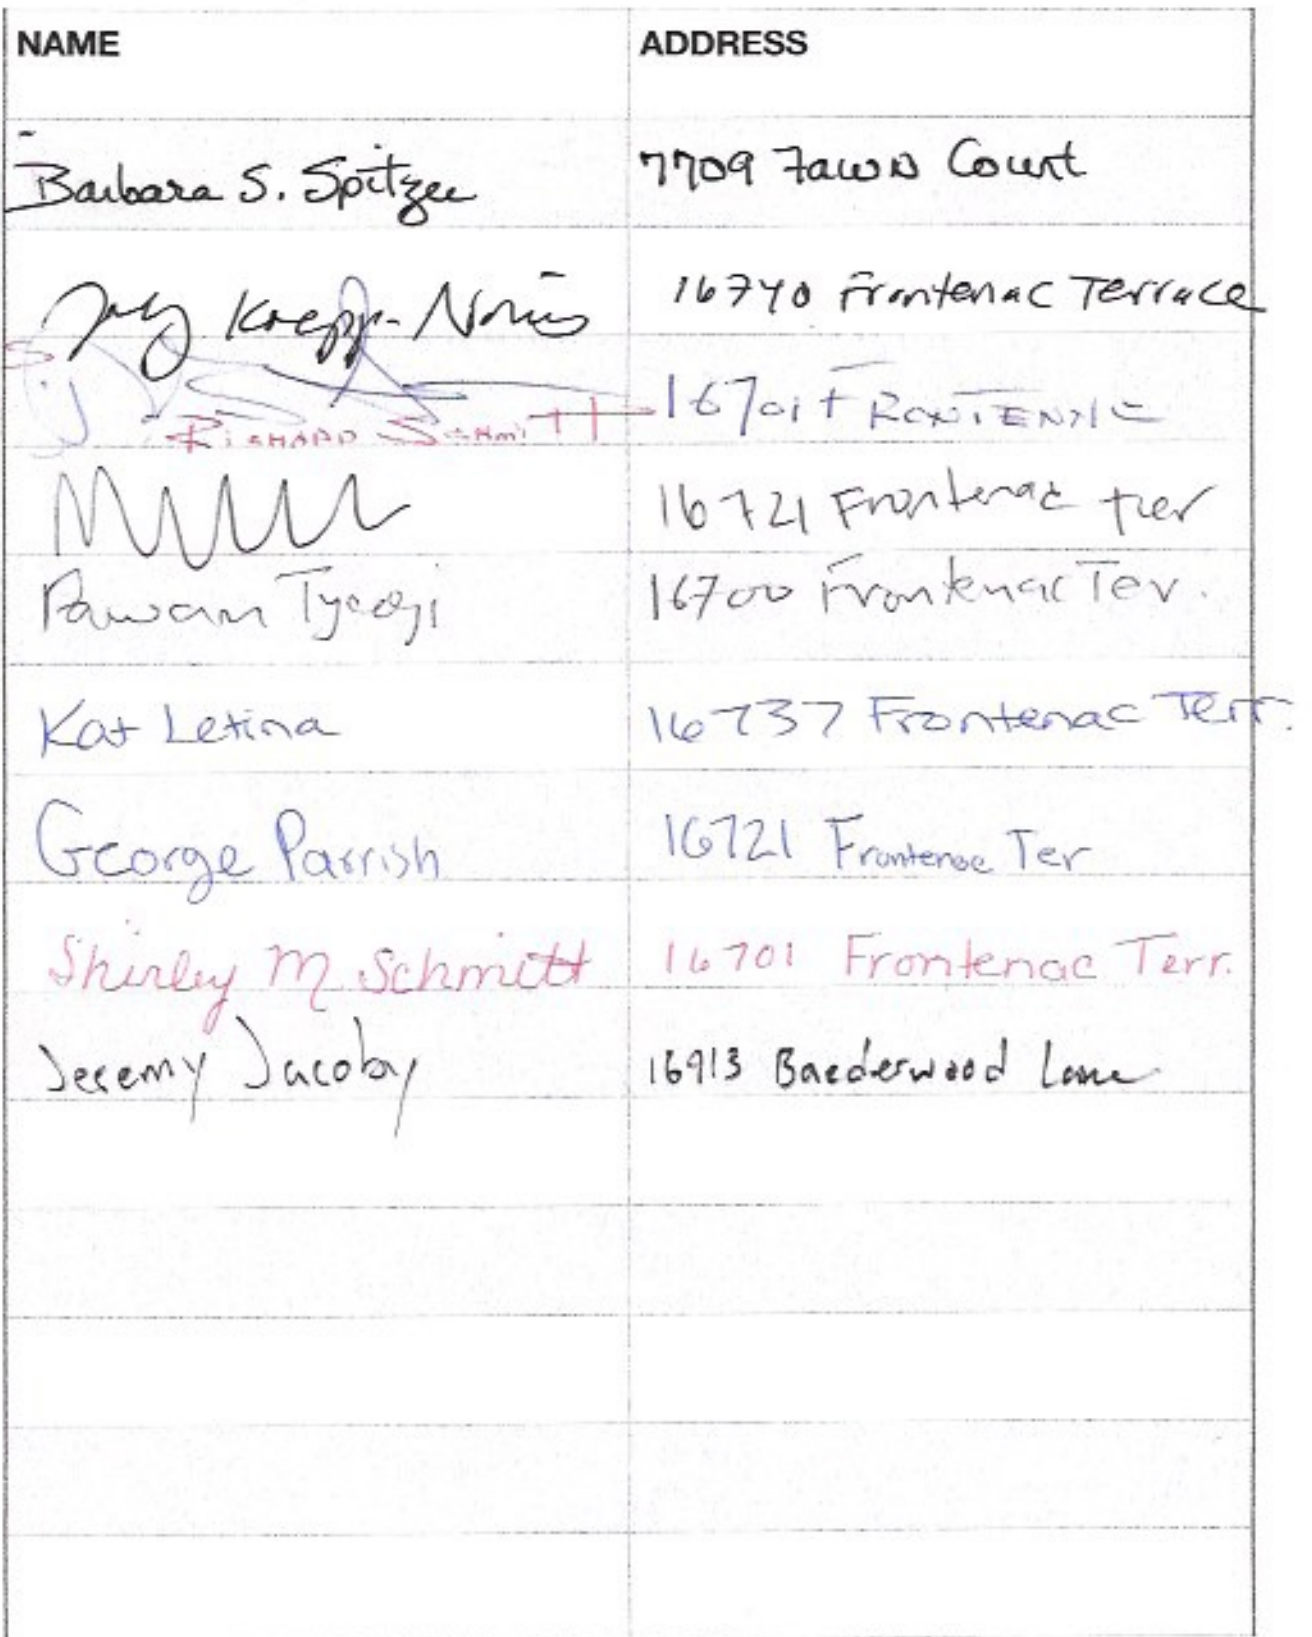 NAME ADDRESS
Barbara S. Spitzer 7709 Fawn Court
Krepp-Norris 16740 Frontenac Terrace
Richard Schmitt 16701 Frontenac
16721 Frontenac ter
Pawan Tyagi 16700 Frontenac Ter.
Kat Letina 16737 Frontenac Terr.
George Parrish 16721 Frontenac Ter
Shirley M Schmitt 16701 Frontenac Terr.
Jeremy Jacoby 16913 Baederwood Lane